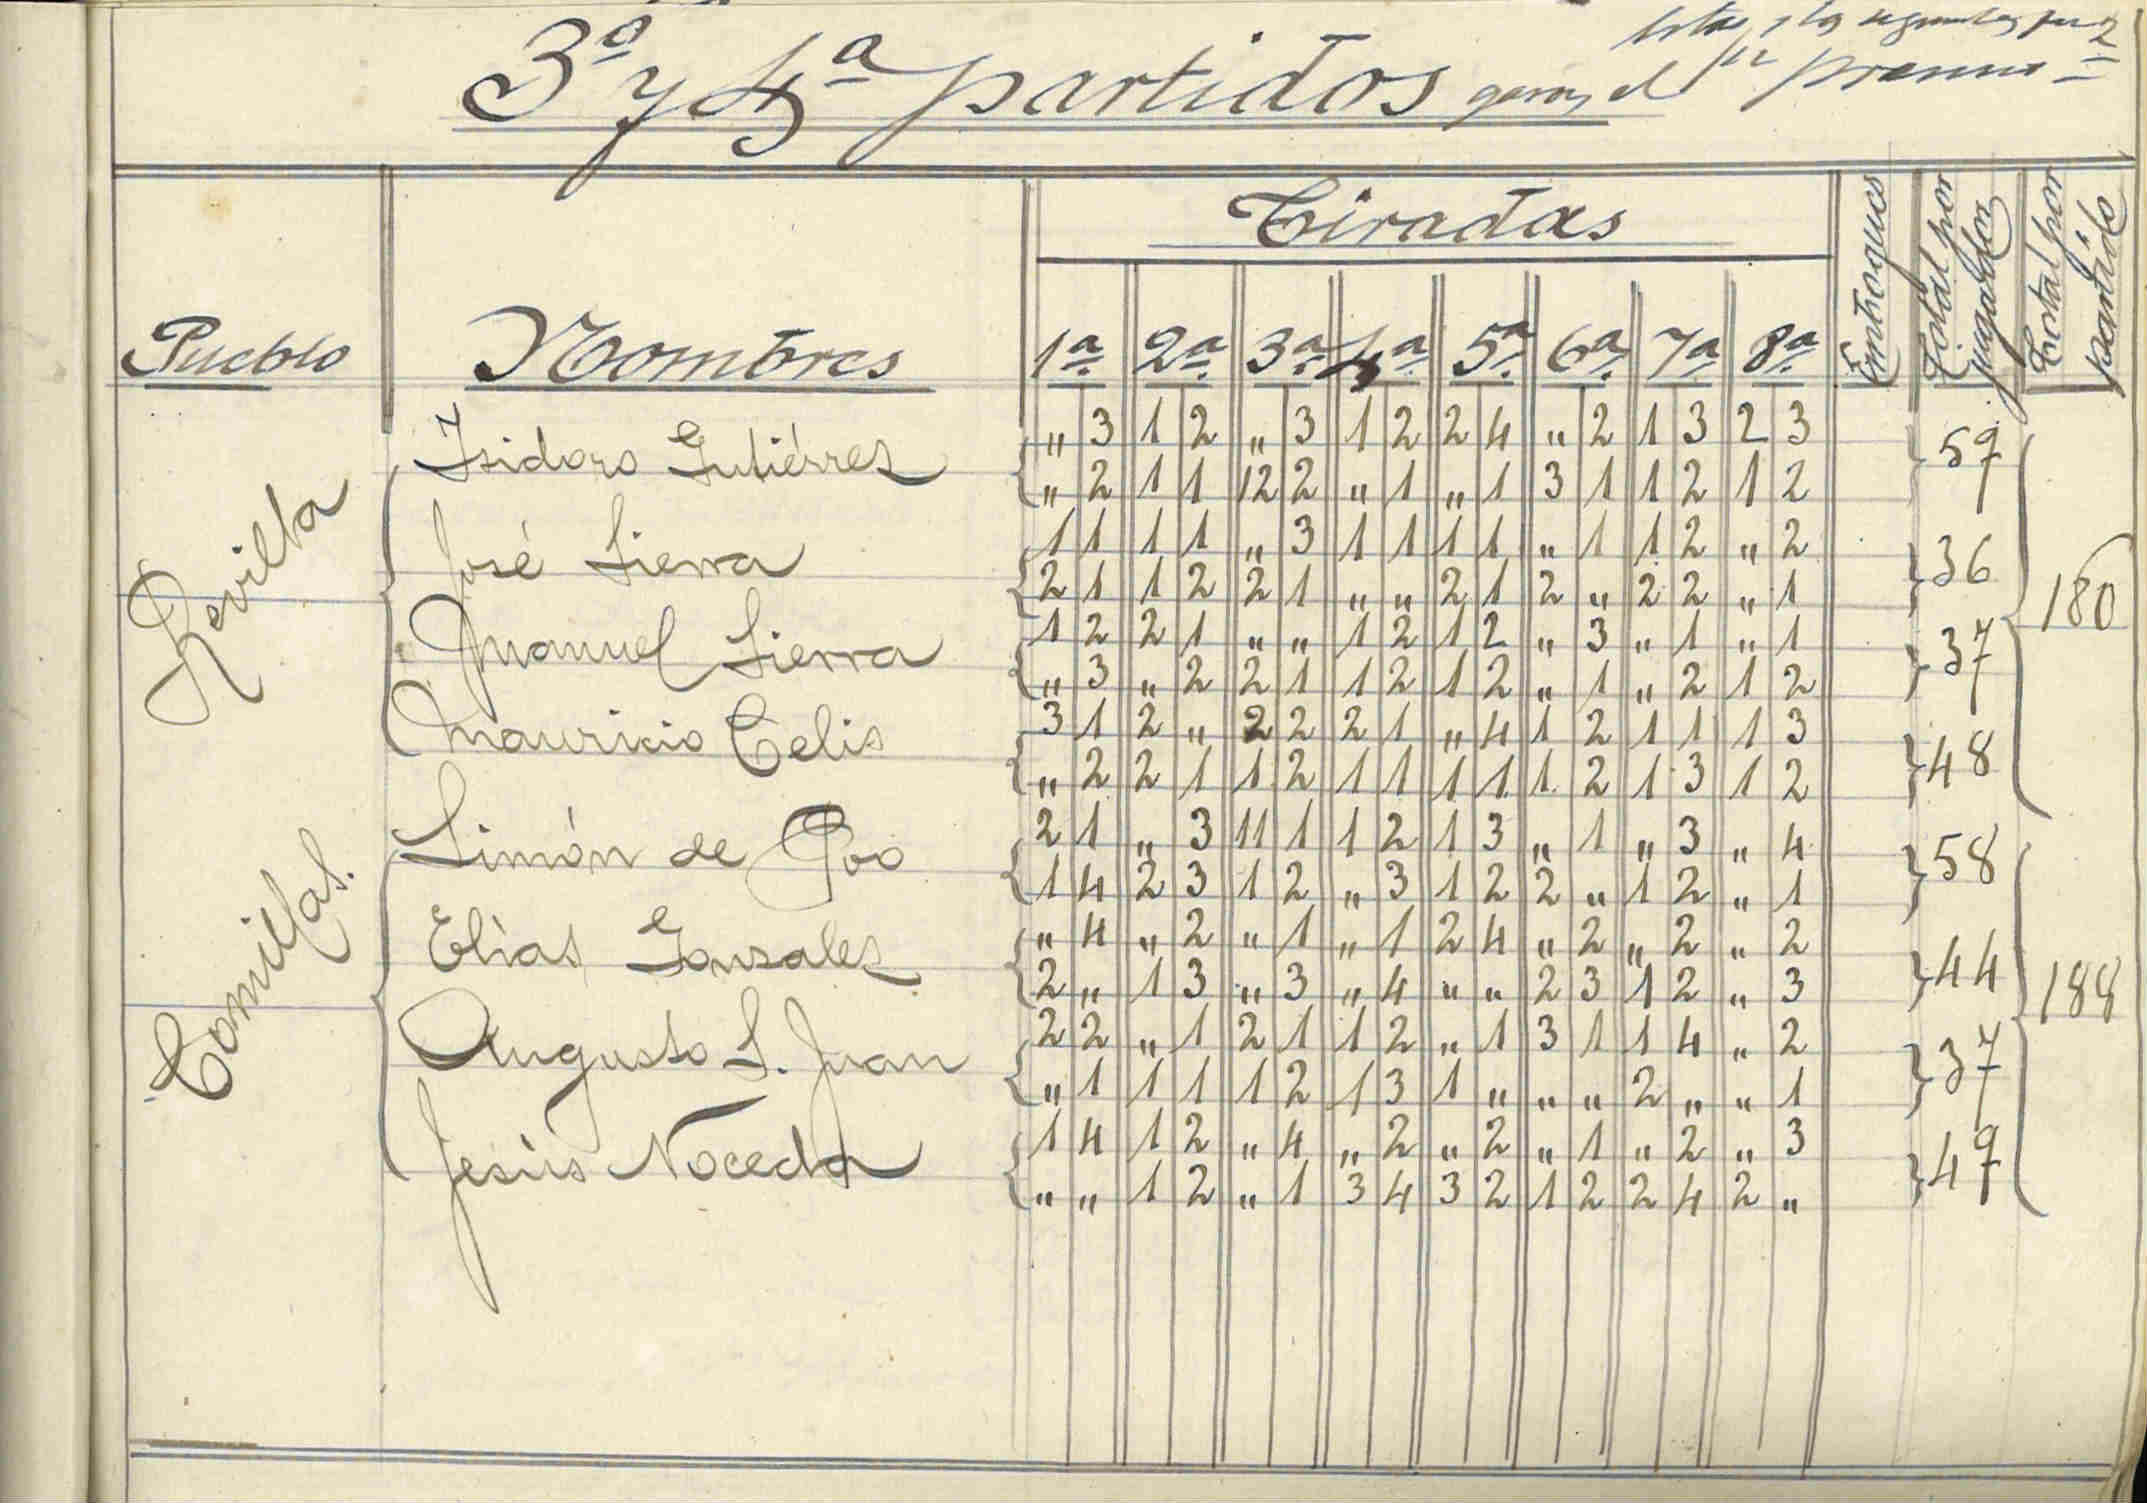 3ª y 4ª partidos
ganan el 1er premio
Pueblo Nombres Tiradas Emboques Total por jugador Total por partido
1ª 2ª 3ª 4ª 5ª 6ª 7ª 8ª
Revilla
Isidoro Gutiérrez „ 3 1 2 „ 3 1 2 2 4 „ 2 1 3 2 3 59
„ 2 1 1 12 2 „ 1 „ 1 3 1 1 2 1 2
José Sierra 1 1 1 1 „ 3 1 1 1 1 „ 1 1 2 „ 2 36
2 1 1 2 2 1 „ „ 2 1 2 „ 2 2 „ 1
180
Manuel Sierra 1 2 2 1 „ „ 1 2 1 2 „ 3 „ 1 „ 1 37
„ 3 „ 2 2 1 1 2 1 2 „ 1 „ 2 1 2
Mauricio Celis 3 1 2 „ 2 2 2 1 „ 4 1 2 1 1 1 3 48
„ 2 2 1 1 2 1 1 1 1 1 2 1 3 1 2
Comillas.
Simón de Poo 2 1 „ 3 11 1 1 2 1 3 „ 1 „ 3 „ 4 58
1 4 2 3 1 2 „ 3 1 2 2 „ 1 2 „ 1
Elías Gonzales „ 4 „ 2 „ 1 „ 1 2 4 „ 2 „ 2 „ 2 44
2 „ 1 3 „ 3 „ 4 „ „ 2 3 1 2 „ 3
188
Augusto S. Juan 2 2 „ 1 2 1 1 2 „ 1 3 1 1 4 „ 2 37
„ 1 1 1 1 2 1 3 1 „ „ „ 2 „ „ 1
Jesús Noceda 1 4 1 2 „ 4 „ 2 „ 2 „ 1 „ 2 „ 3 49
„ „ 1 2 „ 1 3 4 3 2 1 2 2 4 2 „